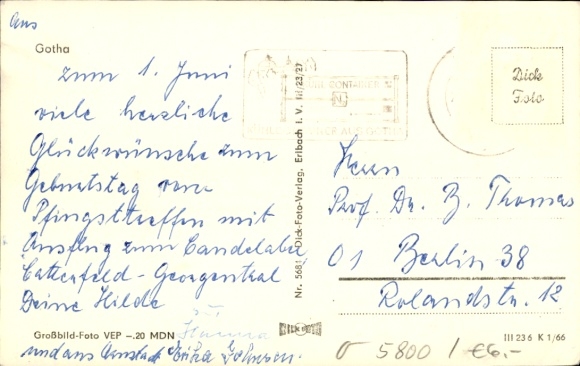 Aus
Gotha
zum 1. Juni
viele herzliche
Glückwünsche zum
Geburtstag vom
Pfingsttreffen mit
Ausflug zum Candelaber
Catterfeld - Georgental
Deine Hilde
Großbild-Foto VEP –.20 MDN
und aus Arnstadt Erika
Nr. 5681 Dick-Foto-Verlag, Erlbach i. V. III/23/27
DICK FOTO
Dick
Foto
Herrn
Prof. Dr. B. Thomas
01 Berlin 38
Rolandstr. 12
III 23 6 K 1/66
5800 / €6.-